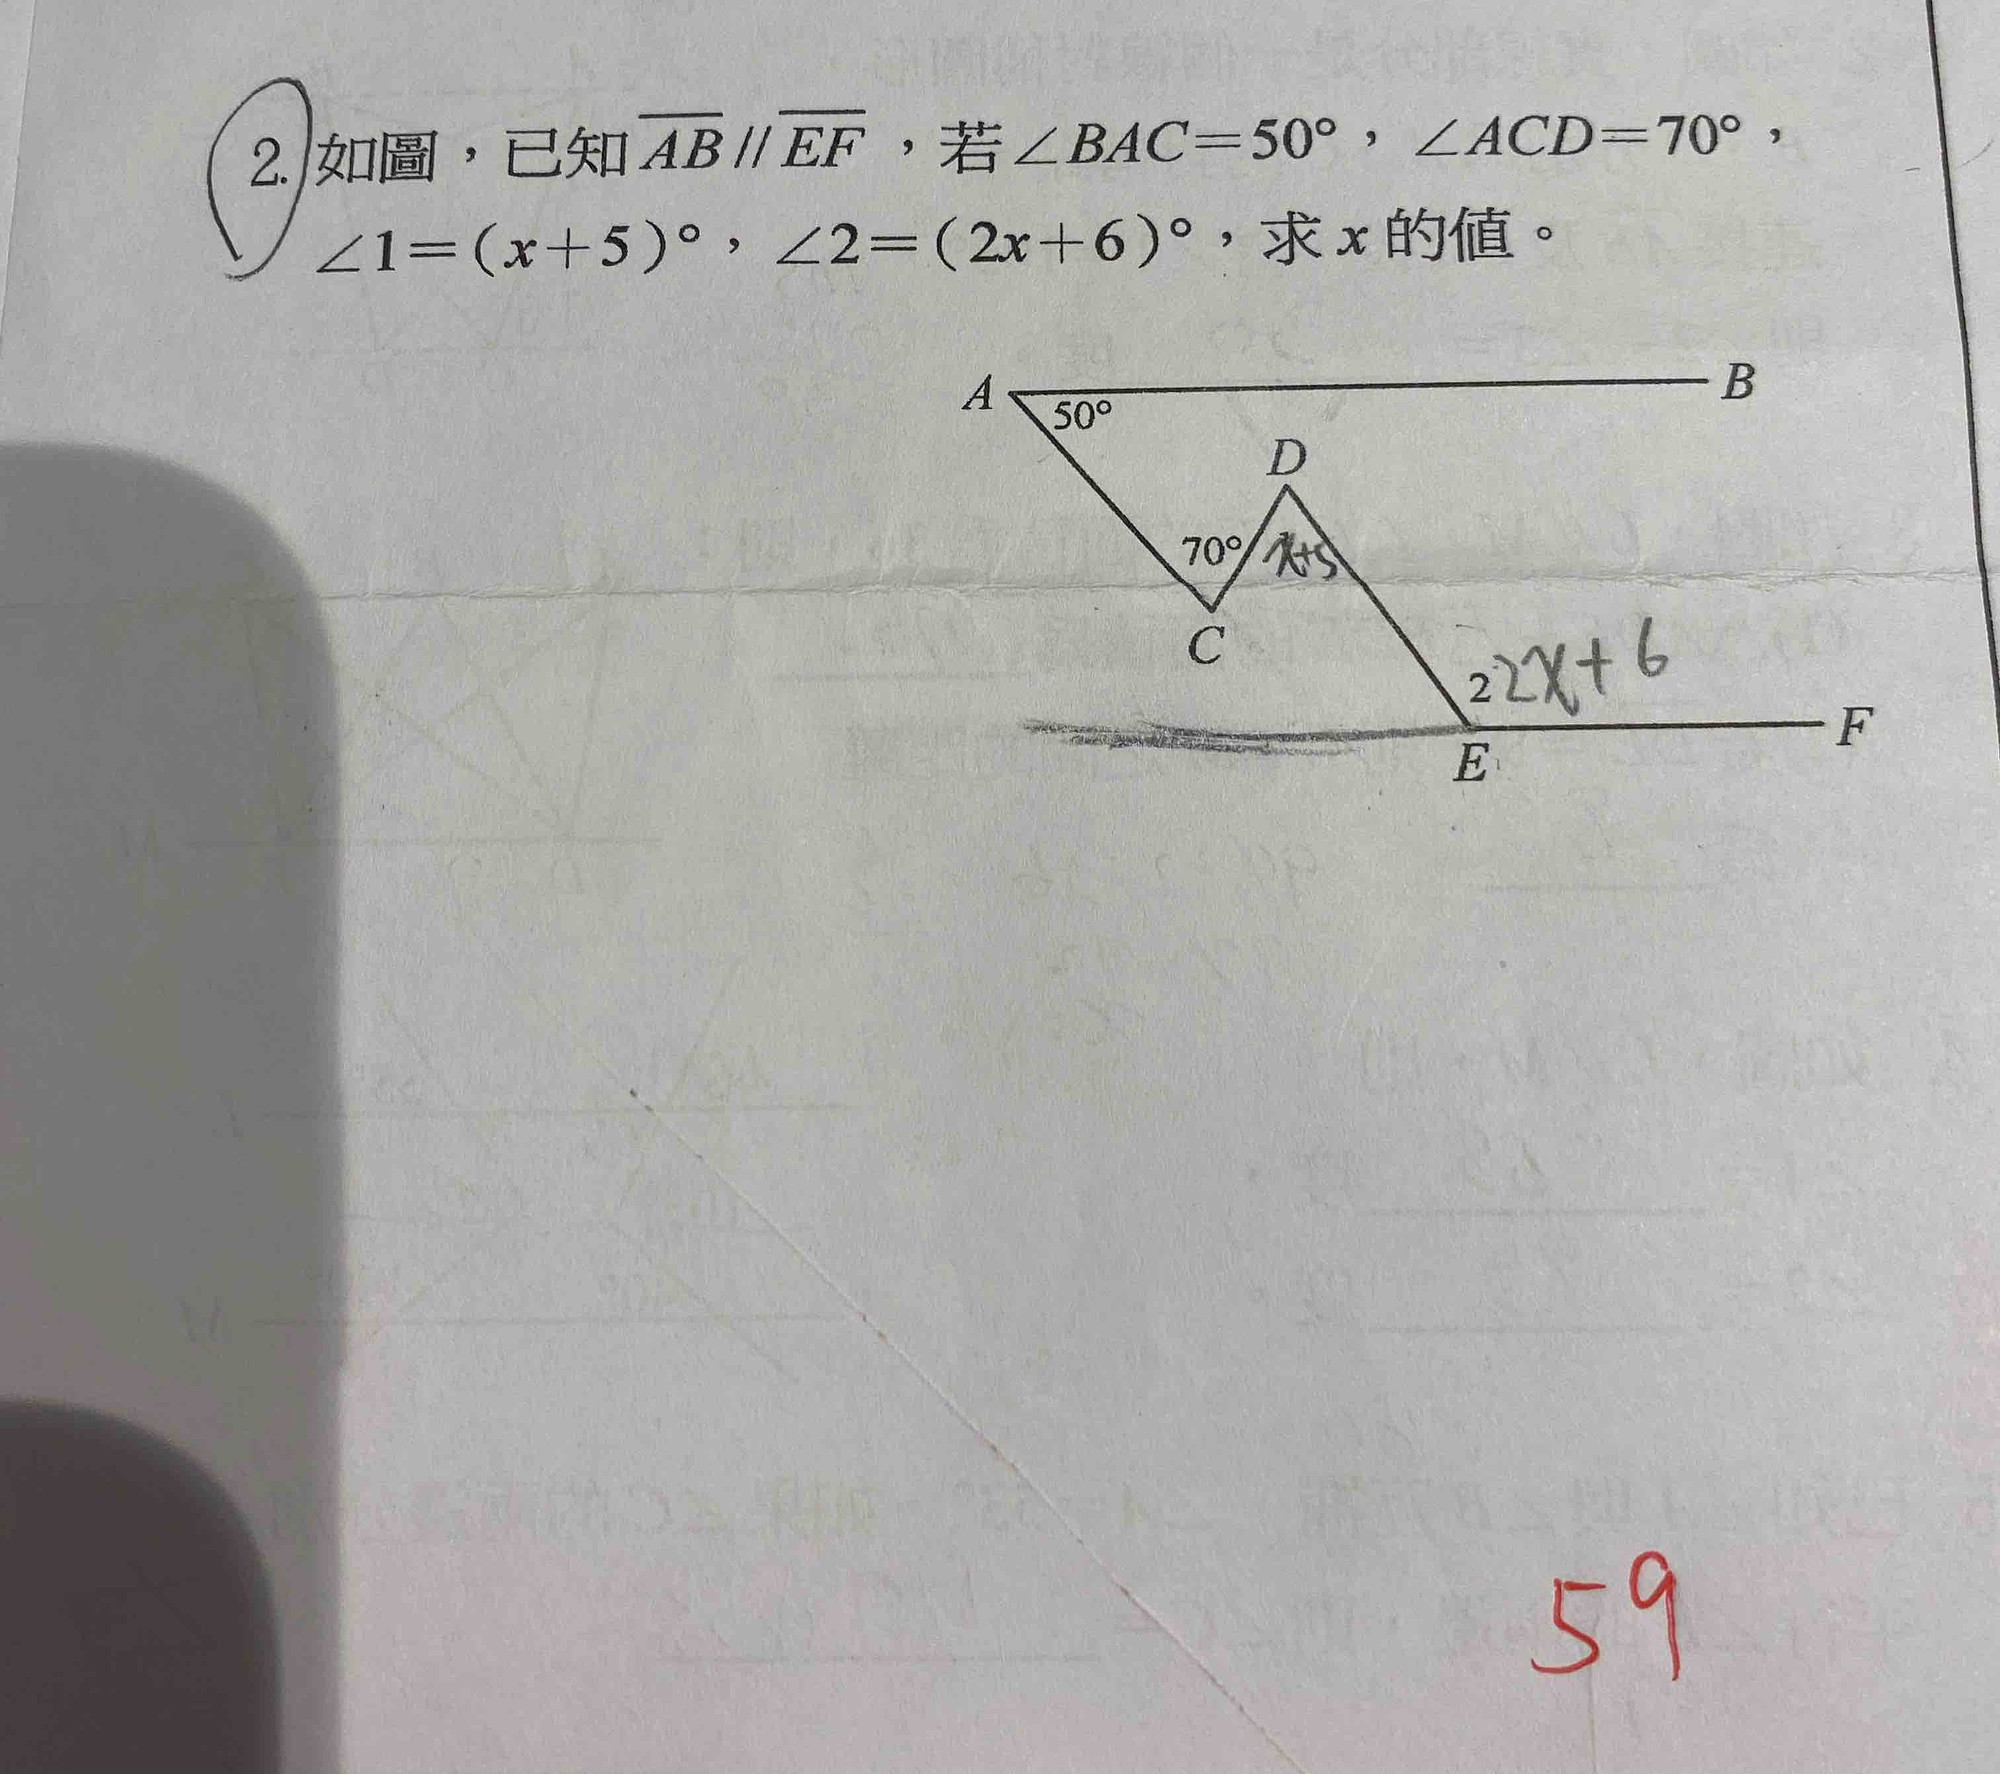 2. 如圖，已知 AB // EF ，若∠BAC＝50°，∠ACD＝70°，
∠1＝(x＋5)°，∠2＝(2x＋6)°，求 x 的值。
A
B
50°
D
70°
x+5
C
2
2x+6
E
F
59